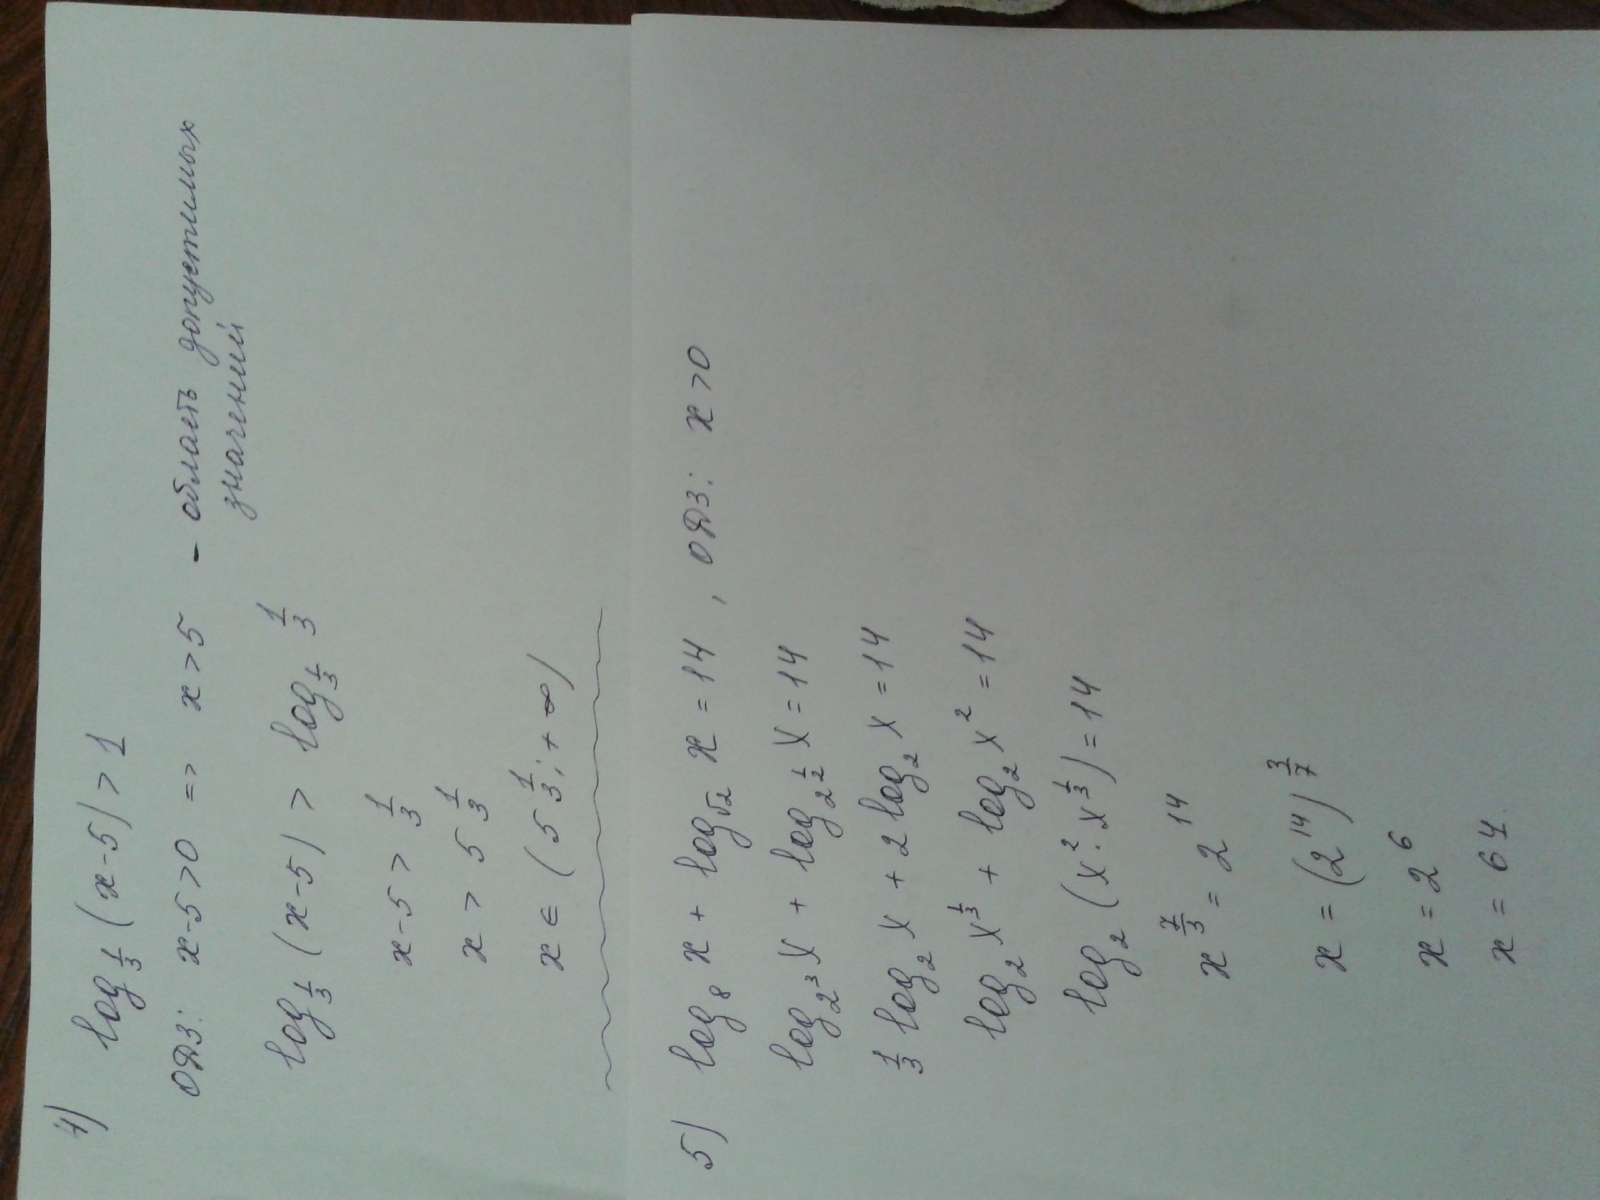 4) log_{1/3} (x-5) > 1
ОДЗ: x-5>0 => x>5 - область допустимых
значений
log_{1/3} (x-5) > log_{1/3} 1/3
x-5 > 1/3
x > 5 1/3
x ∈ (5 1/3; +∞)
5) log_8 x + log_{√2} x = 14, ОДЗ: x>0
log_{2^3} x + log_{2^{1/2}} x = 14
1/3 log_2 x + 2 log_2 x = 14
log_2 x^{1/3} + log_2 x^2 = 14
log_2 (x^2 · x^{1/3}) = 14
x^{7/3} = 2^{14}
x = (2^{14})^{3/7}
x = 2^6
x = 64.